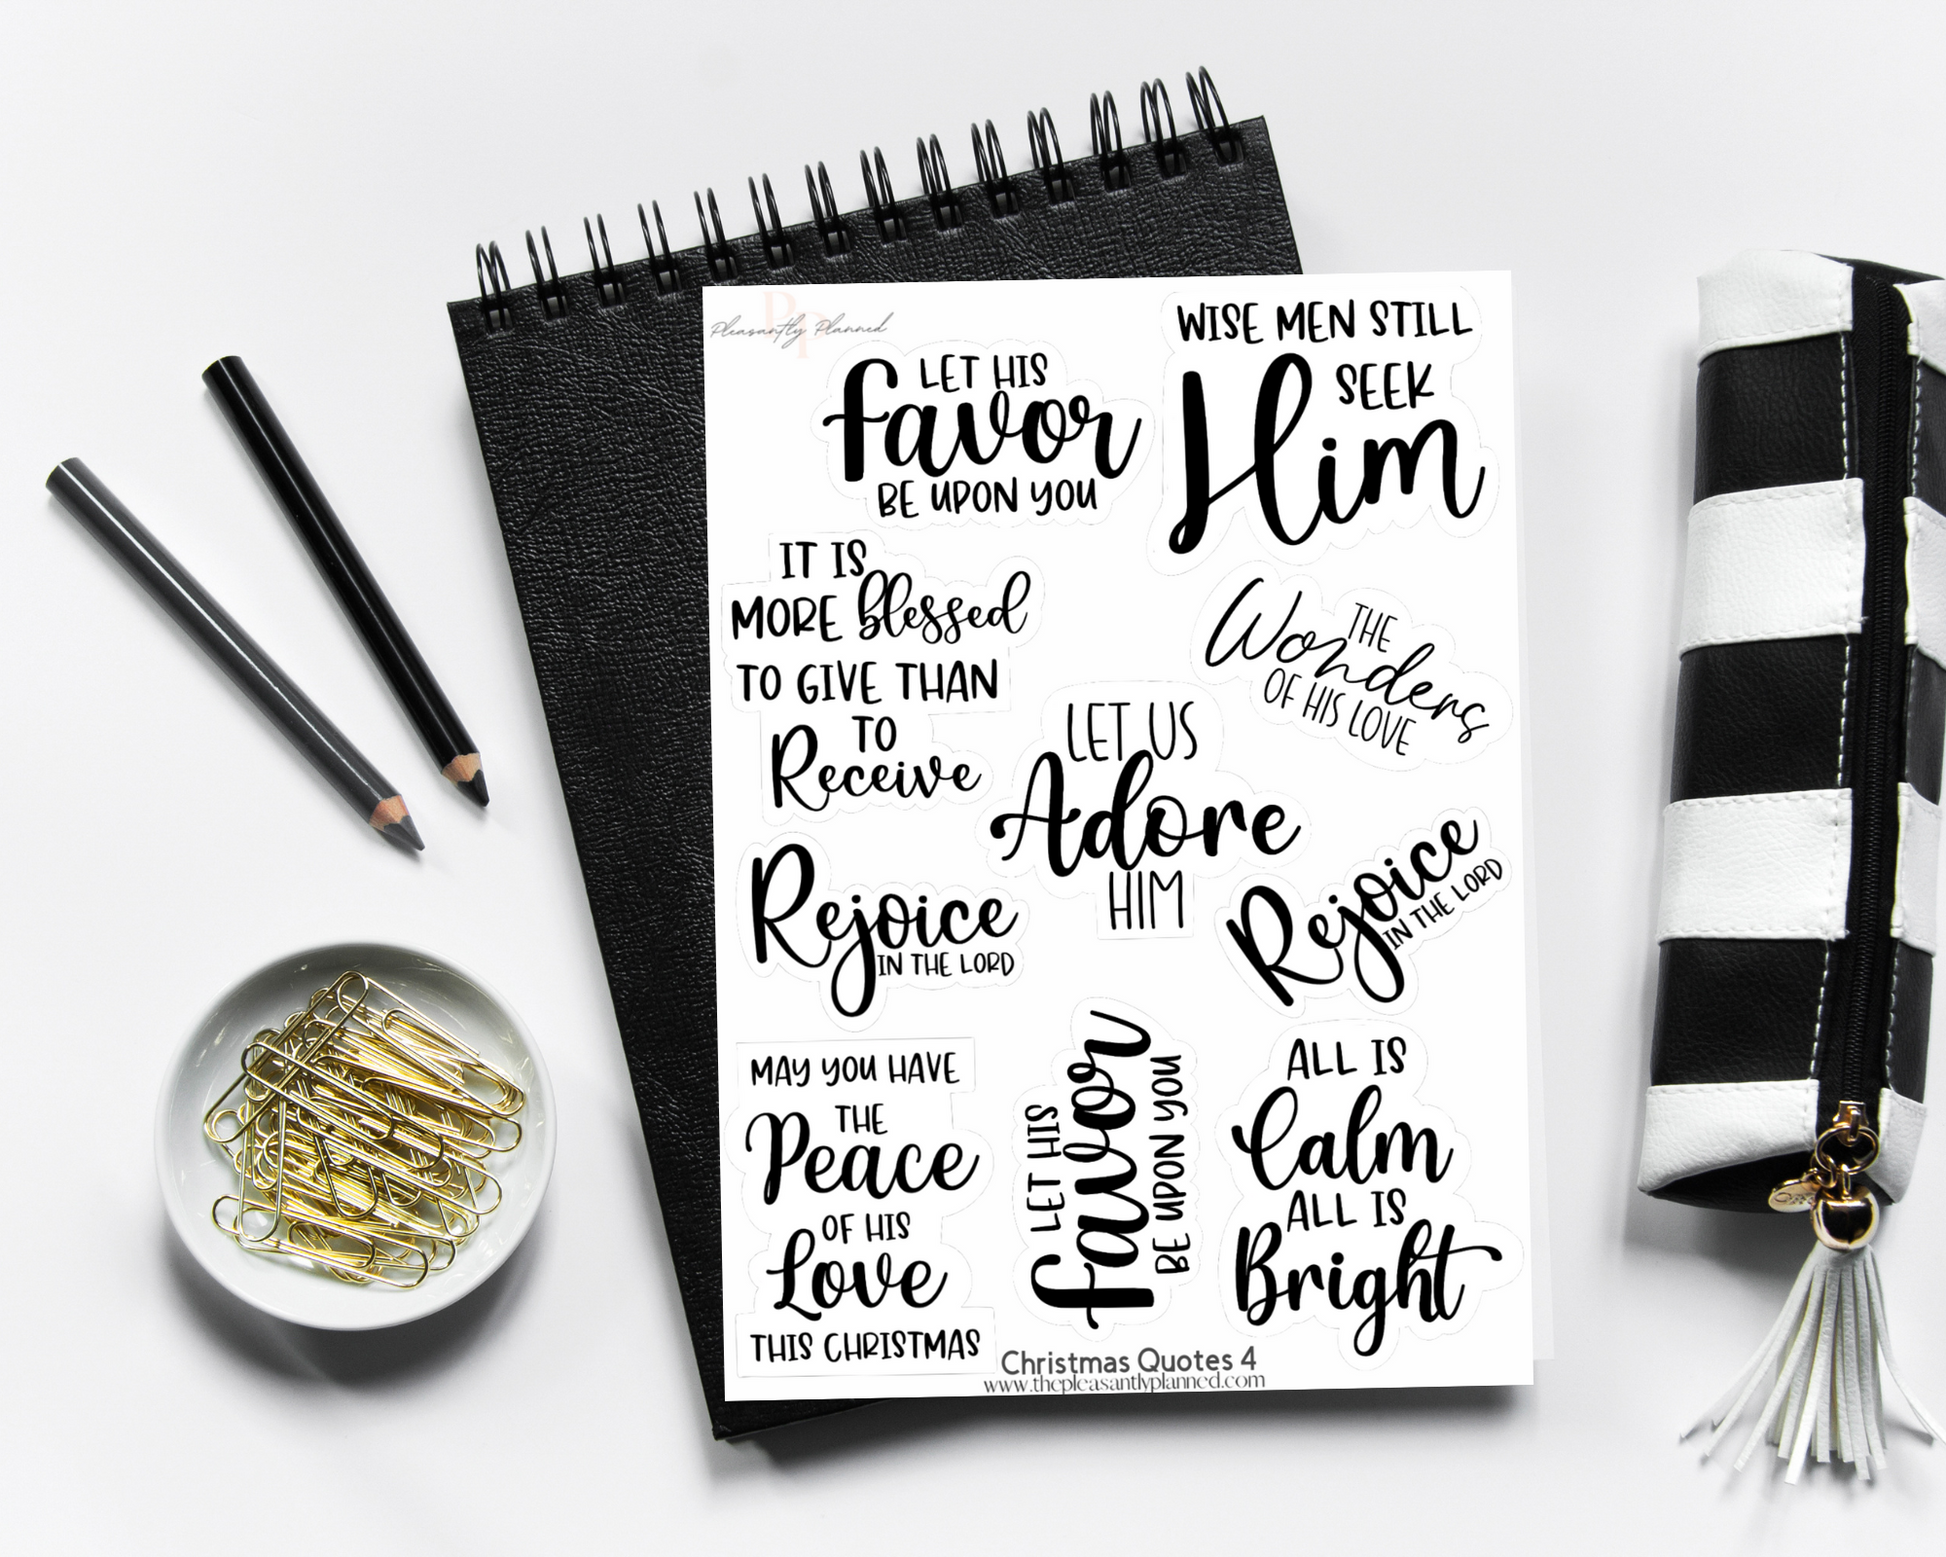 Pleasantly Planned
PP
LET HIS
favor
BE UPON YOU
WISE MEN STILL
SEEK
Him
IT IS
MORE blessed
TO GIVE THAN
TO
Receive
THE
Wonders
OF HIS LOVE
LET US
Adore
HIM
Rejoice
IN THE LORD
Rejoice
IN THE LORD
MAY YOU HAVE
THE
Peace
OF HIS
Love
THIS CHRISTMAS
LET HIS
favor
BE UPON YOU
ALL IS
Calm
ALL IS
Bright
Christmas Quotes 4
www.thepleasantlyplanned.com